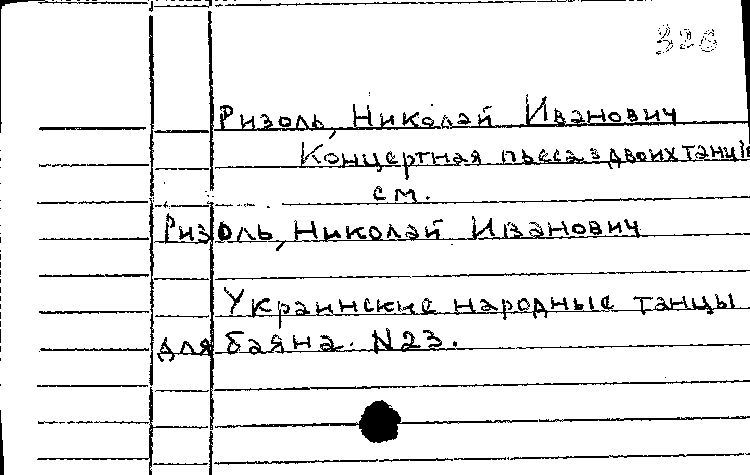 326
Ризоль, Николай Иванович
Концертная пьеса з двоих танці
см.
Ризоль, Николай Иванович
Украинские народные танцы
для баяна. N23.